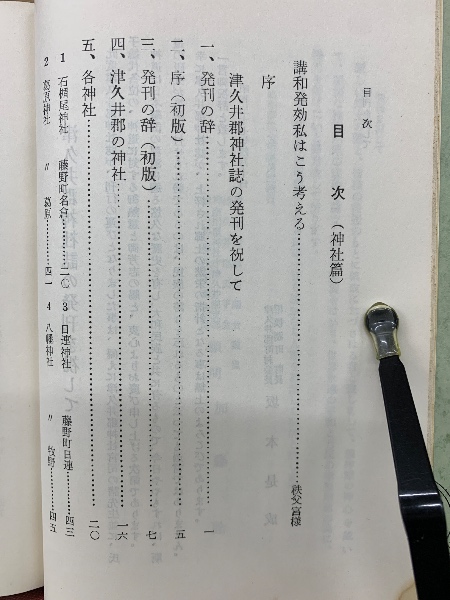 目次
目　次　（神社篇）
講和発効私はこう考える……秩父宮様
序
津久井郡神社誌の発刊を祝して
一、発刊の辞……一
二、序（初版）……五
三、発刊の辞（初版）……七
四、津久井郡の神社……一六
五、各神社……二〇
1　石楯尾神社　藤野町名倉……二〇　3　日連神社　藤野町日連……四三
2　葛原神社　〃　葛原……四一　4　八幡神社　〃　牧野……四五